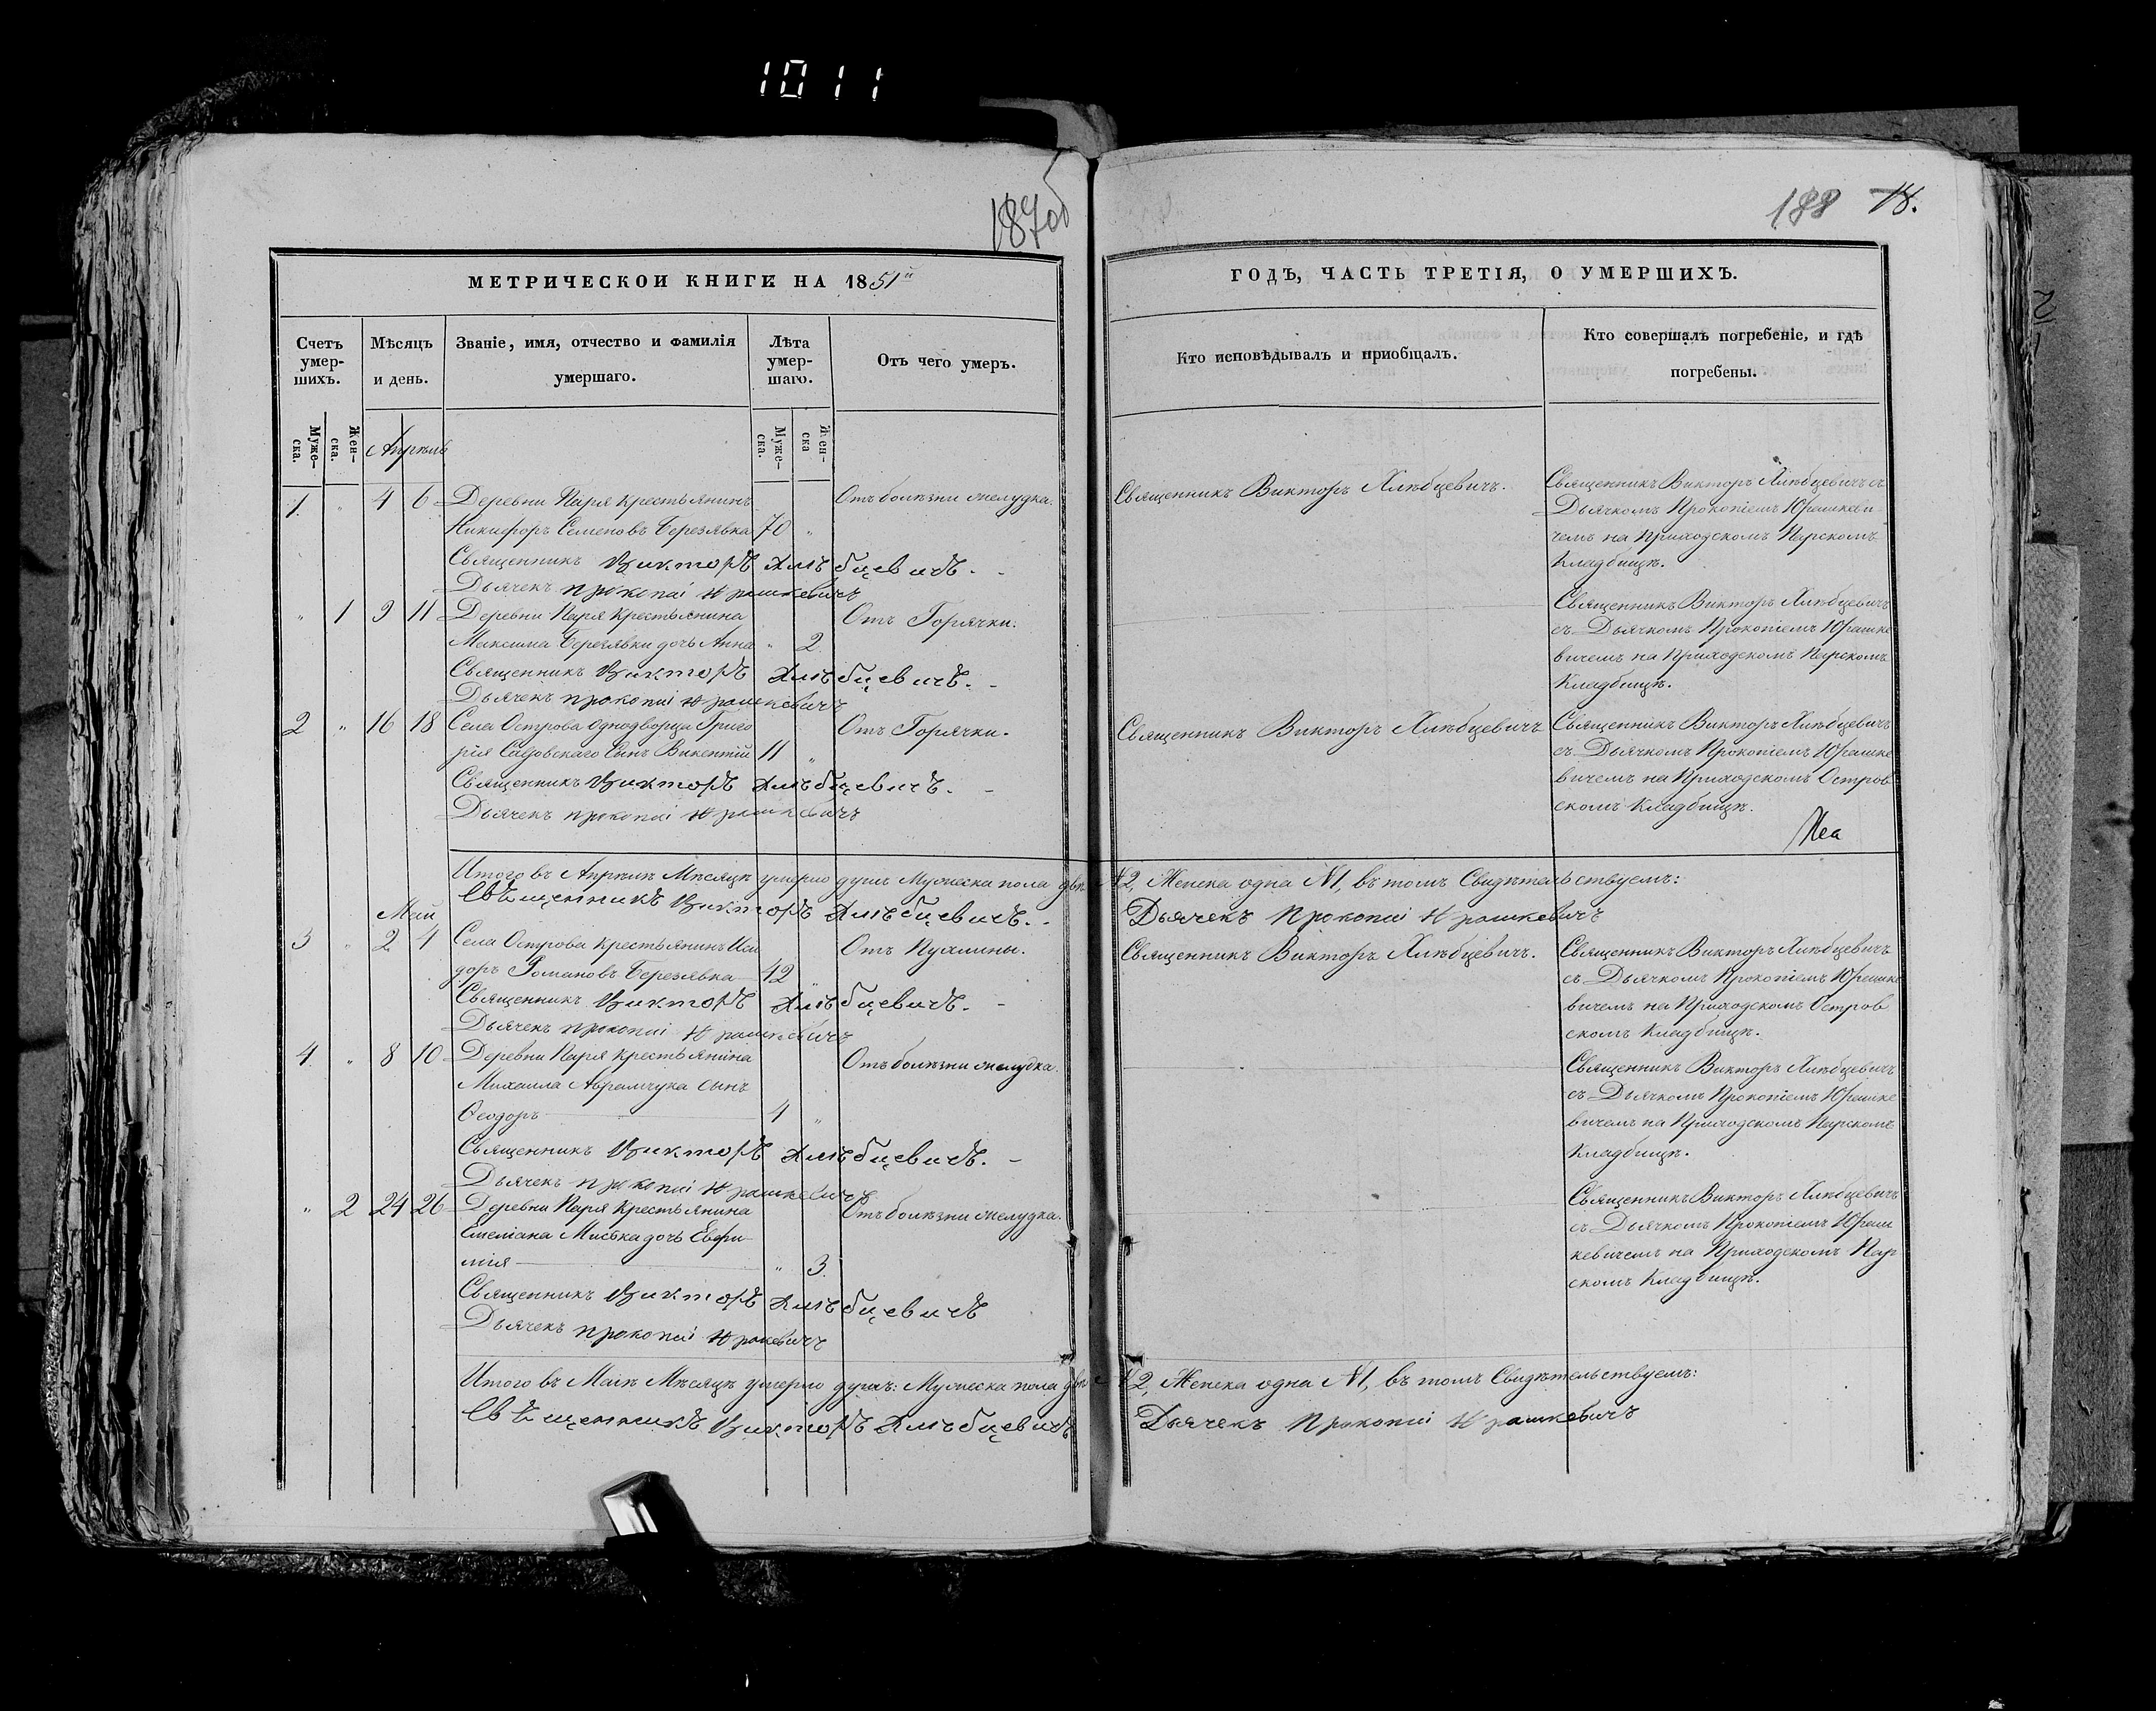 1011
187об
188 18.
МЕТРИЧЕСКОЙ КНИГИ НА 1851й
ГОДЪ, ЧАСТЬ ТРЕТІЯ, О УМЕРШИХЪ.
Счетъ умер-
шихъ.
Мѣсяцъ
и день.
Званіе, имя, отчество и фамилія
умершаго.
Лѣта
умер-
шаго.
Отъ чего умеръ.
Кто исповѣдывалъ и пріобщалъ.
Кто совершалъ погребеніе, и гдѣ
погребены.
Муже-
ска.
Жен-
ска.
Муже-
ска.
Жен-
ска
Апрель
1. " 4 6 Деревни Паря Крестьянинъ Отъ болѣзни желудка.
Никифоръ Семеновъ Березявка 70 "
Священникъ Викторъ Хлѣбцевичъ.
Дьячекъ Прокопій Юрашкевичъ
Священникъ Викторъ Хлѣбцевичъ.
Священникъ Викторъ Хлѣбцевичъ съ
Дьячкомъ Прокопіемъ Юрашкеви-
чемъ на Приходскомъ Парскомъ
Кладбищѣ.
" 1 9 11 Деревни Паря Крестьянина Отъ Горячки.
Максима Березявки дочь Анна " 2
Священникъ Викторъ Хлѣбцевичъ.
Дьячекъ Прокопій Юрашкевичъ
Священникъ Викторъ Хлѣбцевичъ
съ Дьячкомъ Прокопіемъ Юрашке
вичемъ на Приходскомъ Парскомъ
Кладбищѣ.
2 " 16 18 Села Острова Однодворца Григо Отъ Горячки.
рія Сын Викентій 11 "
Священникъ Викторъ Хлѣбцевичъ.
Дьячекъ Прокопій Юрашкевичъ
Священникъ Викторъ Хлѣбцевичъ
Священникъ Викторъ Хлѣбцевичъ
съ Дьячкомъ Прокопіемъ Юрашке
вичемъ на Приходскомъ Остров
скомъ Кладбищѣ.
Итого въ Апрелѣ Мѣсяцѣ умерло душъ Мужеска пола двѣ №2, Женска одна №1, въ томъ Свидѣтельствуемъ:
Священникъ Викторъ Хлѣбцевичъ. Дьячекъ Прокопій Юрашкевичъ
Май
3 " 2 4 Села Острова Крестьянинъ Иси Отъ Пухлины.
доръ Романовъ Березявка 42 "
Священникъ Викторъ Хлѣбцевичъ.
Дьячекъ Прокопій Юрашкевичъ
Священникъ Викторъ Хлѣбцевичъ.
Священникъ Викторъ Хлѣбцевичъ
съ Дьячкомъ Прокопіемъ Юрашке
вичемъ на Приходскомъ Остров
скомъ Кладбищѣ.
4 " 8 10 Деревни Паря Крестьянина Отъ болѣзни желудка.
Михаила Абрамчука сынъ
Ѳеодоръ 4 "
Священникъ Викторъ Хлѣбцевичъ.
Дьячекъ Прокопій Юрашкевичъ
Священникъ Викторъ Хлѣбцевичъ
съ Дьячкомъ Прокопіемъ Юрашке
вичемъ на Приходскомъ Парскомъ
Кладбищѣ.
" 2 24 26 Деревни Паря Крестьянина Отъ болѣзни желудка.
Емеліана Миська дочь Евфи
мія " 3.
Священникъ Викторъ Хлѣбцевичъ
Дьячекъ Прокопій Юракевичъ
Священникъ Викторъ Хлѣбцевичъ
съ Дьячкомъ Прокопіемъ Юраш
кевичемъ на Приходскомъ Пар
скомъ Кладбищѣ.
Итого въ Маѣ Мѣсяцѣ умерло душъ: Мужеска пола двѣ №2, Женска одна №1, въ томъ Свидѣтельствуемъ:
Священникъ Викторъ Хлѣбцевичъ Дьячекъ Прокопій Юрашкевичъ